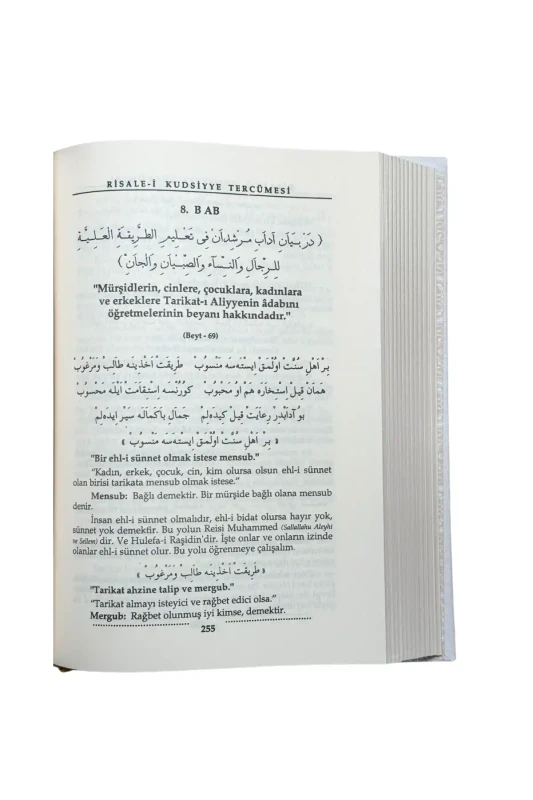 RİSALE-İ KUDSİYYE TERCÜMESİ
8. BAB
( دَرْ بَيَانِ آدَابِ مُرْشِدَانْ فِى تَعْلِيمِ الطَّرِيقَةِ الْعَلِيَّةِ
لِلرِّجَالِ وَالنِّسَآءِ وَالصِّبْيَانِ وَالْجَانِّ )
"Mürşidlerin, cinlere, çocuklara, kadınlara
ve erkeklere Tarikat-ı Aliyyenin âdabını
öğretmelerinin beyanı hakkındadır."
(Beyt - 69)
بِرْ اَهْلِ سُنَّتْ اُولْمَقْ اِيسْتَه سَه مَنْسُوبْ طَرِيقَتْ اَخْذِينَه طَالِبْ وَمَرْغُوبْ
هَمَانْ قِيلْ اِسْتِخَارَه هَمْ اُو مَحْبُوبْ كُورُنْسَه اِسْتِقَامَتْ اَيْلَه مَحْسُوبْ
بُو آدَابْدِرْ رِعَايَتْ قِيلْ كِيدَه لِمْ جَمَالِ بَاكَمَالَه سَيْرِ اِيدَه لِمْ
« بِرْ اَهْلِ سُنَّتْ اُولْمَقْ اِيسْتَه سَه مَنْسُوبْ »
"Bir ehl-i sünnet olmak istese mensub."
"Kadın, erkek, çocuk, cin, kim olursa olsun ehl-i sünnet
olan birisi tarikata mensub olmak istese."
Mensub: Bağlı demektir. Bir mürşide bağlı olana mensub
denir.
İnsan ehl-i sünnet olmalıdır, ehl-i bidat olursa hayır yok,
sünnet yok demektir. Bu yolun Reisi Muhammed (Sallallahu Aleyhi
ve Sellem) dir. Ve Hulefa-i Raşidin'dir. İşte onlar ve onların izinde
olanlar ehl-i sünnet olur. Bu yolu öğrenmeye çalışalım.
« طَرِيقَتْ اَخْذِينَه طَالِبْ وَمَرْغُوبْ »
"Tarikat ahzine talip ve mergub."
"Tarikat almayı isteyici ve rağbet edici olsa."
Mergub: Rağbet olunmuş iyi kimse, demektir.
255